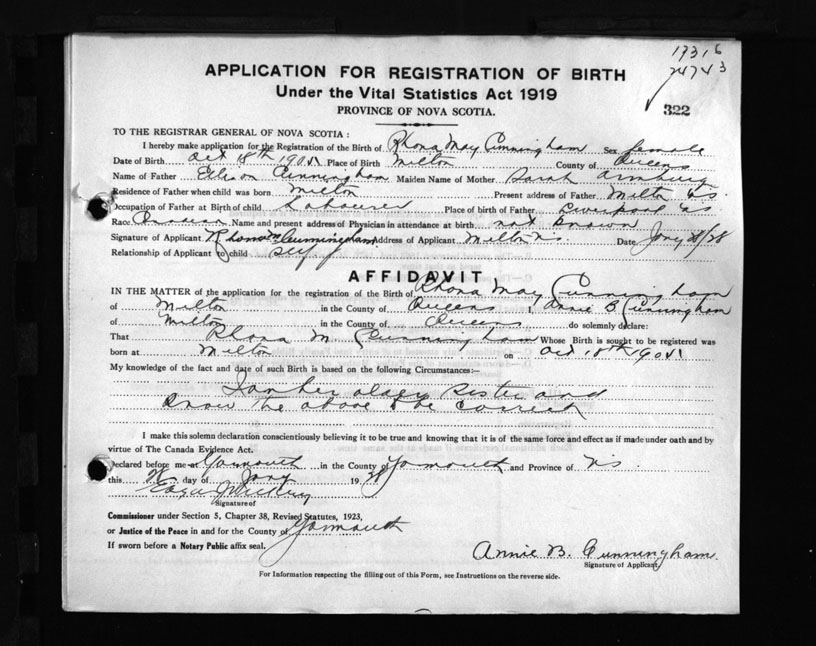 1731 6
74743
322
APPLICATION FOR REGISTRATION OF BIRTH
Under the Vital Statistics Act 1919
PROVINCE OF NOVA SCOTIA.
TO THE REGISTRAR GENERAL OF NOVA SCOTIA:
I hereby make application for the Registration of the Birth of Rhona May Cunningham Sex female
Date of Birth Oct 18th 190 Place of Birth Milton County of Queens
Name of Father Cunningham Maiden Name of Mother Sarah
Residence of Father when child was born Milton Present address of Father Milton
Occupation of Father at Birth of child Labourer Place of birth of Father Liverpool
Race Canadian Name and present address of Physician in attendance at birth not known
Signature of Applicant Rhona M Cunningham Address of Applicant Milton N.S. Date Jany /28
Relationship of Applicant to child self
AFFIDAVIT
IN THE MATTER of the application for the registration of the Birth of Rhona May Cunningham
of Milton in the County of Queens I, Annie B. Cunningham
of Milton in the County of Queens do solemnly declare:
That Rhona M. Cunningham Whose Birth is sought to be registered was
born at Milton on Oct 18th 190
My knowledge of the fact and date of such Birth is based on the following Circumstances:—
I am her older sister and
know the above to be correct
I make this solemn declaration conscientiously believing it to be true and knowing that it is of the same force and effect as if made under oath and by
virtue of The Canada Evidence Act.
Declared before me at Yarmouth in the County of Yarmouth and Province of N.S.
this day of Jany 19 28
Signature of
Commissioner under Section 5, Chapter 38, Revised Statutes, 1923,
or Justice of the Peace in and for the County of Yarmouth
If sworn before a Notary Public affix seal.
Annie B. Cunningham
Signature of Applicant.
For Information respecting the filling out of this Form, see Instructions on the reverse side.